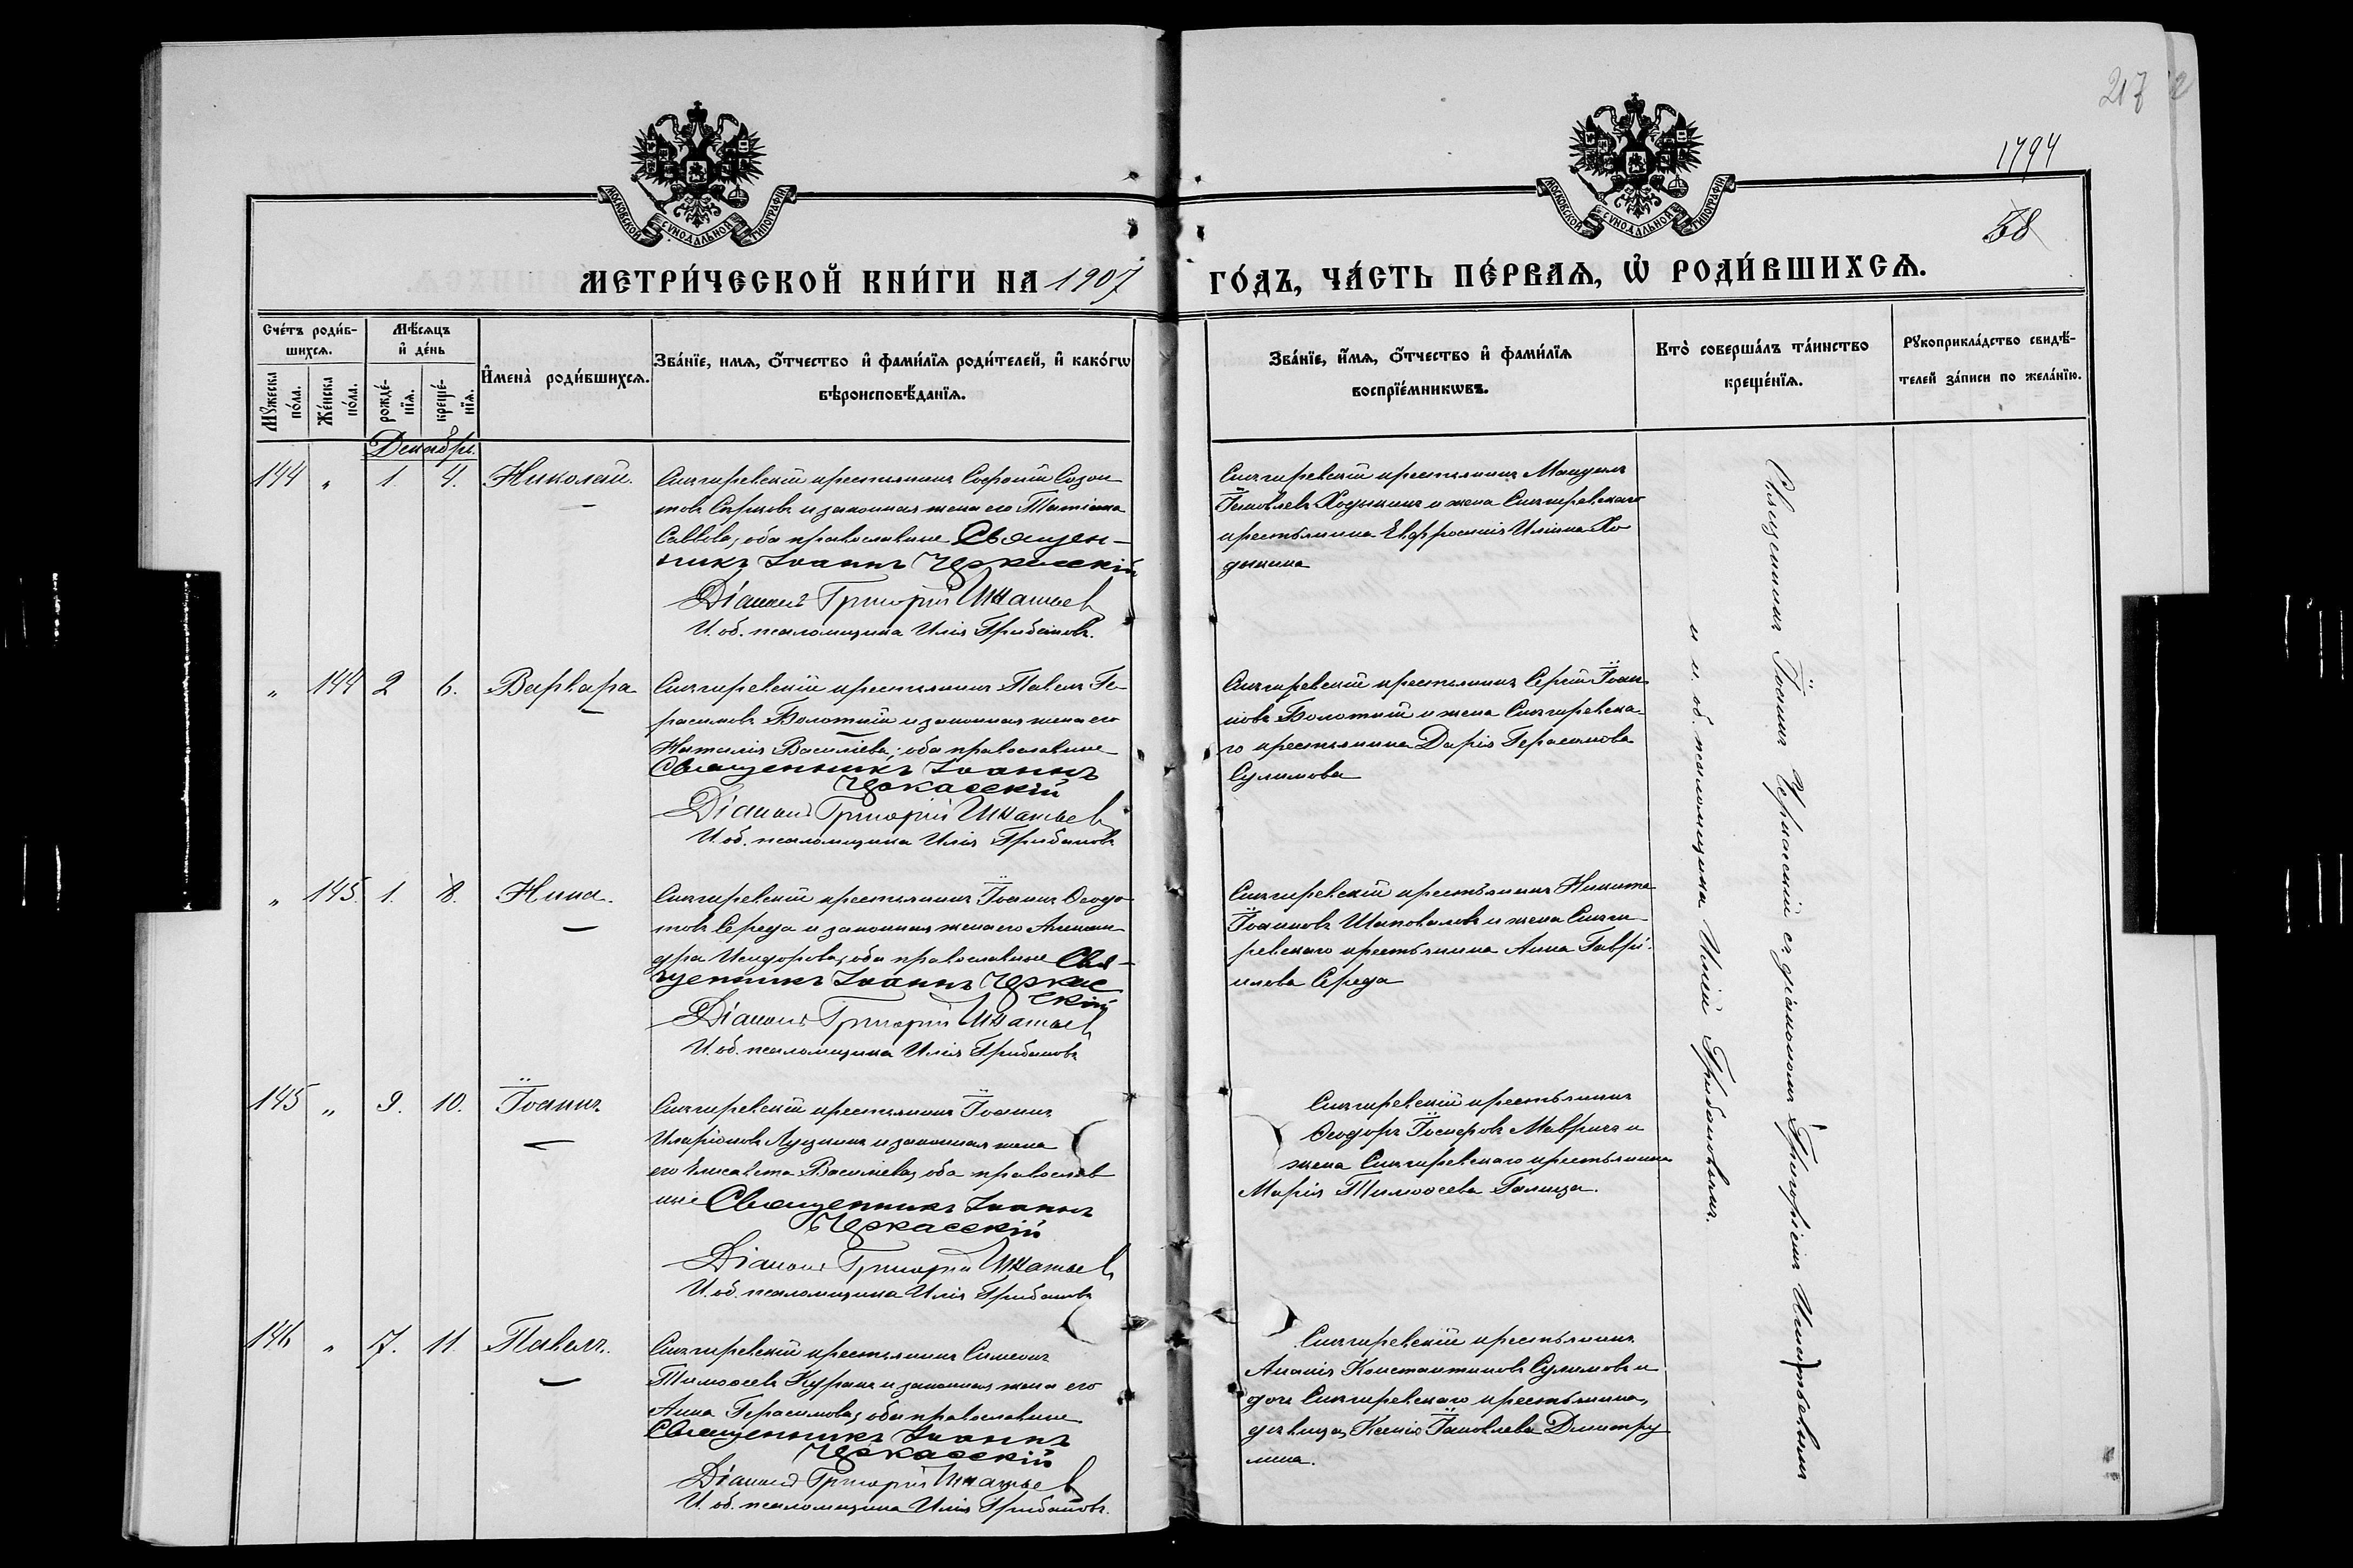 217
1794
58
МОСКОВСКОЙ СѴНОДАЛЬНОЙ ТИПОГРАФІИ
МОСКОВСКОЙ СѴНОДАЛЬНОЙ ТИПОГРАФІИ
МЕТРИ́ЧЕСКОЙ КНИ́ГИ НА 1907 ГО́ДЪ, ЧА́СТЬ ПЕ́РВАѦ, Ѽ РОДИ́ВШИХСѦ.
Сче́тъ роди́в-
шихсѧ.
Мꙋжеска по́ла.
Же́нска по́ла.
Мѣ́сѧцъ
и҆ де́нь
рожде́-
нїѧ.
креще́-
нїѧ.
И҆мена̀ роди́вшихсѧ.
Зва́нїе, имѧ, ѻ҆́тчество и҆ фами́лїѧ роди́телей, и҆ како́гѡ
вѣроисповѣ́данїѧ.
Зва́нїе, и҆́мѧ, ѻ҆́тчество и҆ фами́лїѧ
воспрїе́мникѡвъ.
Кто̀ соверша́лъ та́инство
креще́нїѧ.
Рꙋкоприкла́дство свидѣ́-
телей за́писи по жела́нїю.
Декабрь.
144 " 1 4. Николай.
Снигиревскій крестьянинъ Софоній Созон-
товъ и законная жена его Татіана
Саввова, оба православные Священ-
никъ Іоаннъ Черкасскій
Діаконъ Григорій Игнатьев
И. об. псаломщика Илія Грибановъ.
Снигиревскій крестьянинъ
Іаковлевъ Ходыкинъ и жена Снигиревскаго
крестьянина Евфросинія Иліина Хо
дыкина
" 144 2 6. Варвара
Снигиревскій крестьянинъ Павелъ Ге-
расимовъ Болотній и законная жена его
Наталія Василіева, оба православные
Священникъ Іоаннъ
Черкасскій
Діаконъ Григорій Игнатьев
И. об. псаломщика Илія Грибановъ
Снигиревскій крестьянинъ Сергій Іоан-
новъ Болотній и жена Снигиревска-
го крестьянина Дарія Герасимова
Сулимова
" 145. 1. 8. Нина.
Снигиревскій крестьянинъ Іоаннъ Ѳеодо-
товъ Середа и законная жена его Алексан-
дра Исидорова, оба православные Свя-
щенникъ Іоаннъ Черкас
скій
Діаконъ Григорій Игнатьев
И. об. псаломщика Илія Грибановъ
Снигиревскій крестьянинъ Никита
Іоанновъ Шаповаловъ и жена Сниги-
ревскаго крестьянина Анна Гаврі-
илова Середа
145 " 9. 10. Іоаннъ
Снигиревскій крестьянинъ Іоаннъ
Иларіоновъ и законная жена
его Елисавета Василіева, оба православ
ные Священникъ Іоаннъ
Черкасскій
Діаконъ Григорій Игнатьев
И. об. псаломщика Илія Грибановъ
Снигиревскій крестьянинъ
Ѳеодоръ Іосифовъ Мавричъ и
жена Снигиревскаго крестьянина
Марія Тимоѳеева Галица.
146 " 7. 11. Павелъ.
Снигиревскій крестьянинъ Симеонъ
Тимоѳеевъ и законная жена его
Анна Герасимова, оба православные
Священникъ Іоаннъ
Черкасскій
Діаконъ Григорій Игнатьев
И. об. псаломщика Илія Грибановъ.
Снигиревскій крестьянинъ
Ананія Константиновъ Сулимовъ и
дочь Снигиревскаго крестьянина,
девица, Ксенія Іаковлева Дмитру
лина.
Священникъ Іоаннъ Черкасскій съ діакономъ Григоріемъ Игнатьевымъ
и и. об. псаломщика Иліей Грибановымъ.